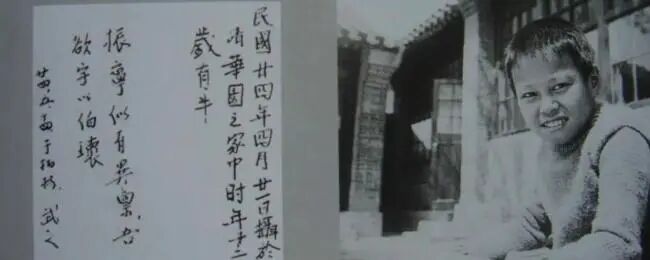 民國廿四年四月廿一日攝於
清華園之家中時年十二
歲有半
振寧似有異禀吾
欲字以伯瓌
于柏林 武之